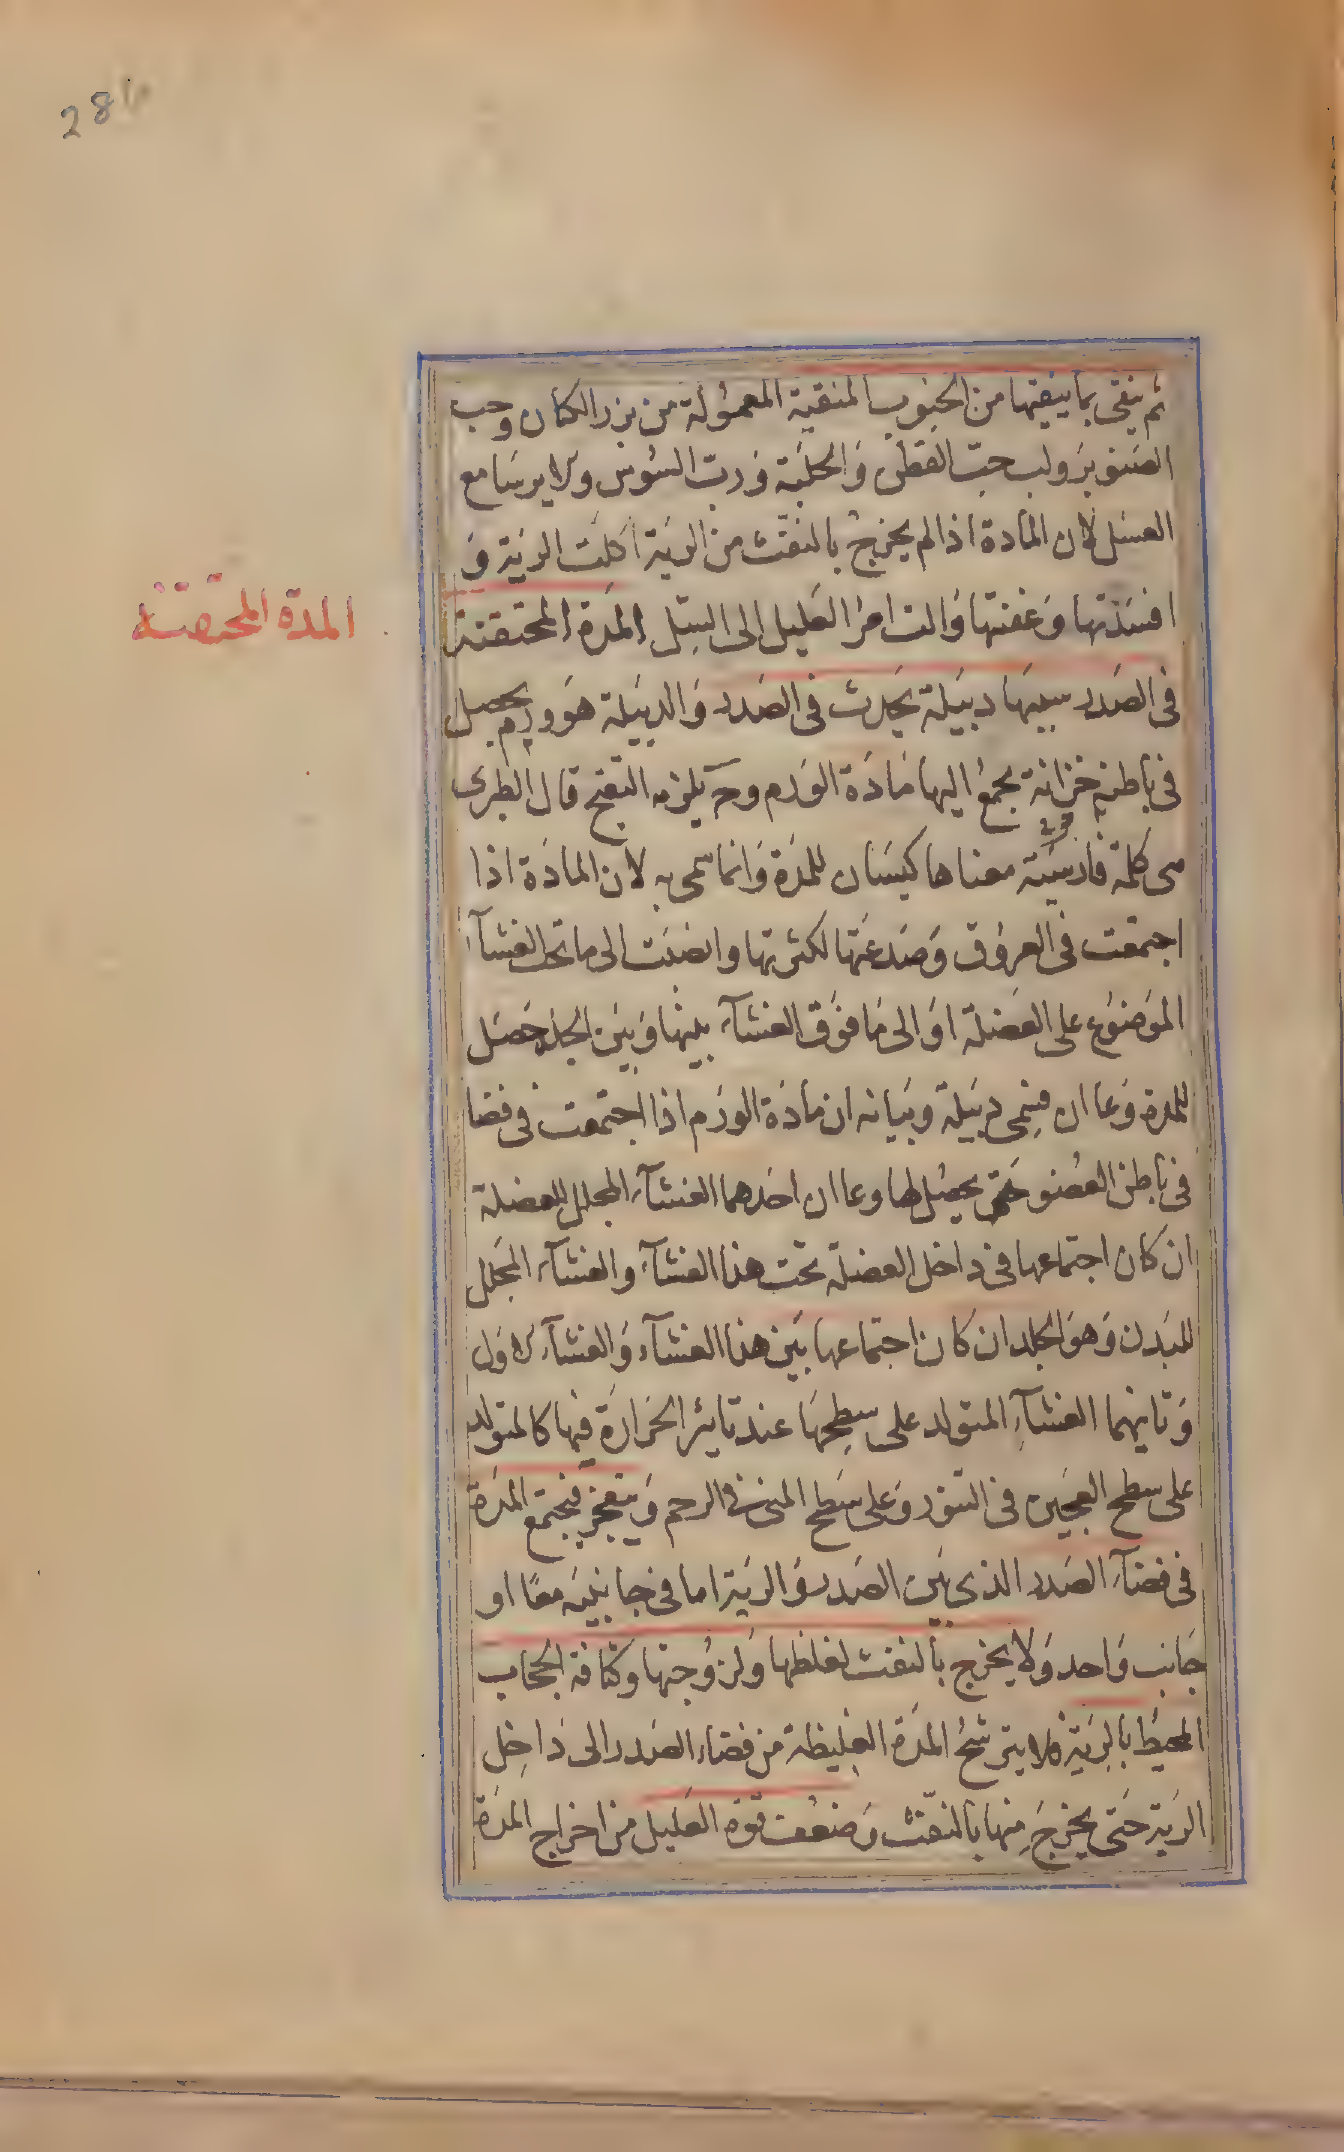 28
ثم ينقى بما ينقيها من الحبوب المنقية المعمولة من بزر الكتان وحب
الصنوبر ولب حب القطن والحلبة ورب السوس والايرسا مع
العسل لان المادة اذا لم يخرج بالنفث من الرية اكلت الرية و
افسدتها وعفنتها والت امر العليل الى السل المدة المحتقنة
المدة المحتقنة
فى الصدر سببها دبيلة يحدث فى الصدر والدبيلة هو ورم يحصل
فى باطنه خزانة يجمع اليها مادة الورم وح يلزمه التقيح قال الطبرى
هى كلمة فارسية معناها كيسان للمدة وانما سمى به لان المادة اذا
اجتمعت فى العروق وصدعتها لكثرتها وانصبت الى ما تحت الغشآ
الموضوع على العضلة او الى ما فوق الغشآء بينها وبين الجلد حصل
للمدة وعاان فسمى دبيلة وبيانه ان مادة الورم اذا اجتمعت فى فضا
فى باطن العضو حتى يحصل لها وعاان احدهما الغشآء المجلل للعضلة
ان كان اجتماعها فى داخل العضلة تحت هذا الغشآء والغشآء المجلل
للبدن وهو الجلد ان كان اجتماعها بين هذا الغشآء والغشآء الاول
وثانيهما الغشآء المتولد على سطحها عند تاثير الحرارة فيها كالمتولد
على سطح العجين فى التنور وعلى سطح المنى فى الرحم وينفجر فيجتمع المدة
فى فضآء الصدر الذى بين الصدر والرية اما فى جانبيه معا او
جانب واحد ولا يخرج بالنفث لغلظها ولزوجتها وكثافة الحجاب
المحيط بالرية فلا يترشح المدة الغليظة من فضاء الصدر الى داخل
الرية حتى يخرج منها بالنفث وضعفت قوة العليل من اخراج المدة